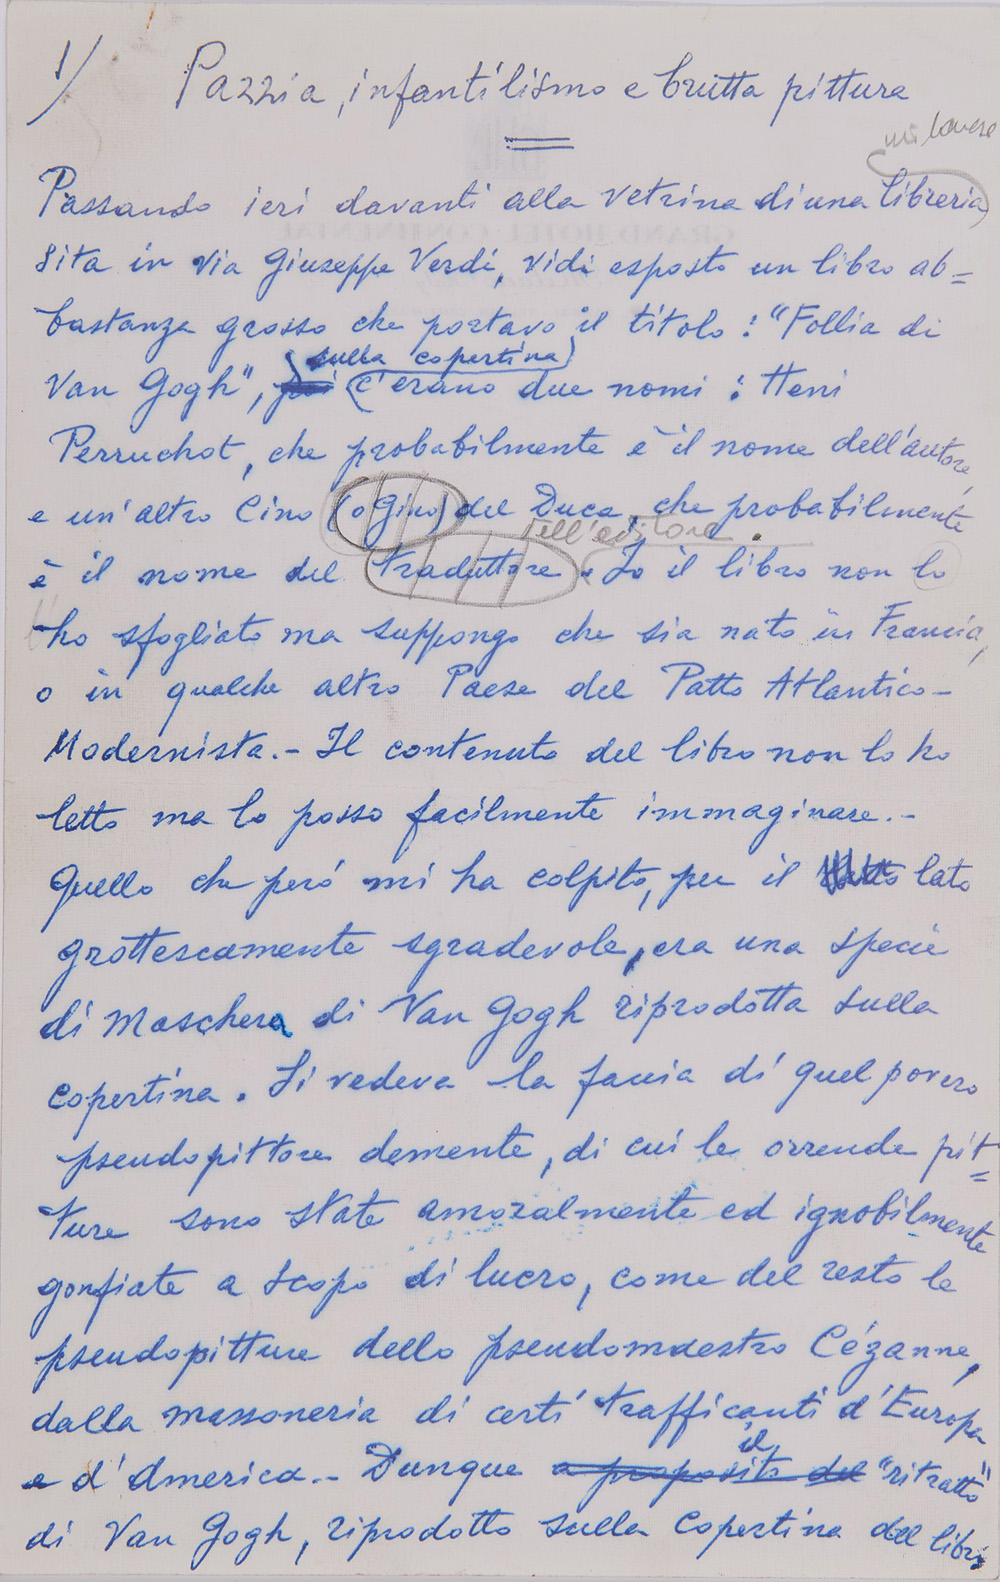 1/
Pazzia, infantilismo e brutta pittura
milanese
Passando ieri davanti alla vetrina di una libreria
sita in via Giuseppe Verdi, vidi esposto un libro ab=
bastanza grosso che portava il titolo: "Follia di
sulla copertina
Van Gogh", poi c'erano due nomi: Heni
Perruchot, che probabilmente è il nome dell'autore,
e un'altro Cino (o Gino) del Duca, che probabilmente
dell'editore.
è il nome del traduttore. Io il libro non lo
ho sfogliato ma suppongo che sia nato in Francia,
o in qualche altro Paese del Patto Atlantico-
Modernista.- Il contenuto del libro non lo ho
letto ma lo posso facilmente immaginare.-
Quello che peró mi ha colpito, per il lato
grottescamente sgradevole, era una specie
di Maschera di Van Gogh riprodotta sulla
copertina. Si vedeva la faccia di quel povero
pseudopittore demente, di cui le orrende pit=
ture sono state amoralmente ed ignobilmente
gonfiate a scopo di lucro, come del resto le
pseudopitture dello pseudomaestro Cézanne,
dalla massoneria di certi trafficanti d'Europa
il
e d'America.- Dunque a proposito del "ritratto"
di Van Gogh, riprodotto sulla copertina del libro